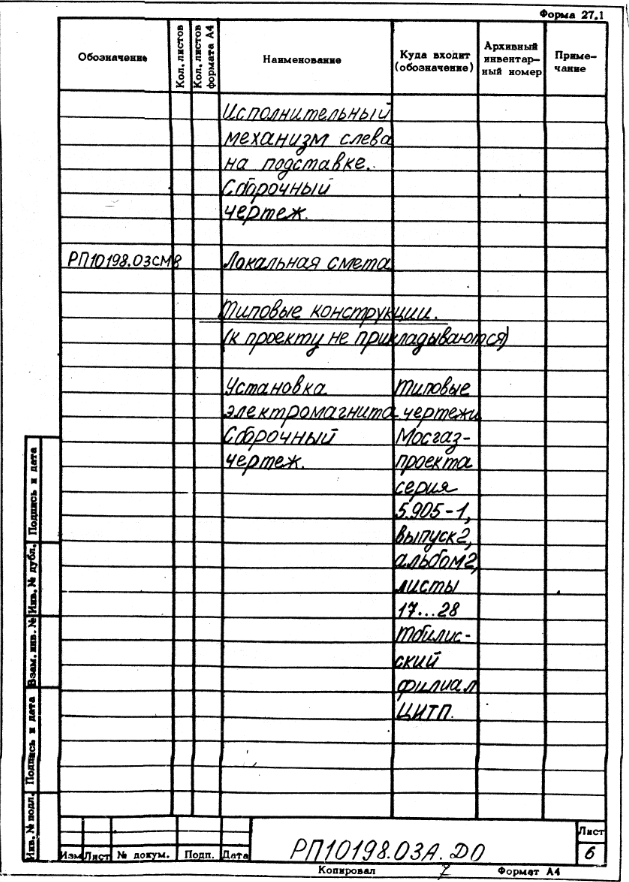 Форма 27.1
Обозначение
Кол. листов
Кол. листов
формата А4
Наименование
Куда входит
(обозначение)
Архивный
инвентар-
ный номер
Приме-
чание
Исполнительный
механизм слева
на подставке.
Сборочный
чертеж.
РП10198.03СМ8 Локальная смета
Типовые конструкции.
(к проекту не прикладываются)
Установка
электромагнита
Сборочный
чертеж.
Типовые
чертежи
Мосгаз-
проекта
серия
5.905-1,
выпуск 2,
альбом 2,
листы
17...28
Тбилис-
ский
филиал
ЦИТП.
Инв. № подл. Подпись и дата Взам. инв. № Инв. № дубл. Подпись и дата
Изм Лист № докум. Подп. Дата
РП10198.03А.Д0
Лист
6
Копировал 7 Формат А4